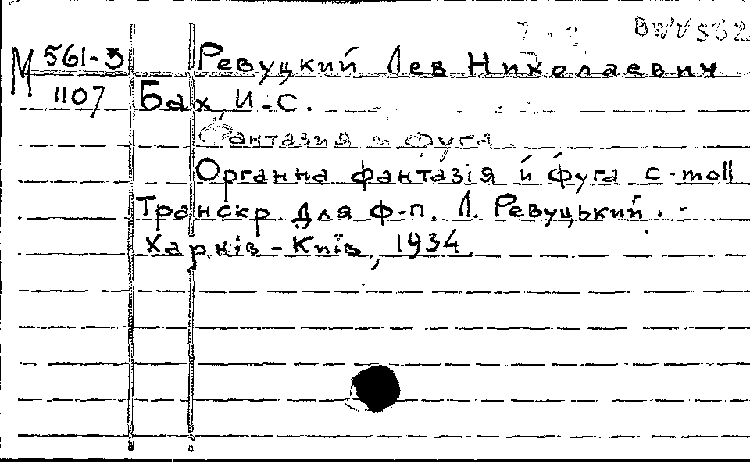 BWV 532
М 561-3 Ревуцкий Лев Николаевич
1107 Бах, И.-С.
Фантазия и фуга
Органна фантазія й фуга c-moll
Транскр. для ф-п. Л. Ревуцький. -
Харків - Київ, 1934.